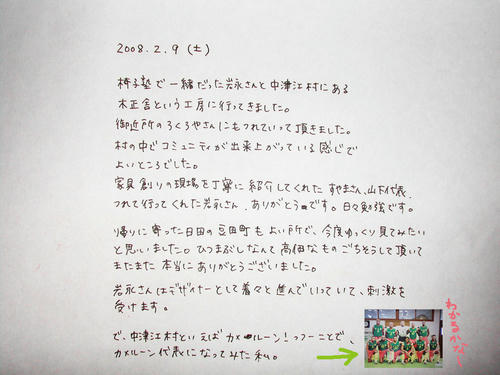 2008.2.9(土)
椅子塾で一緒だった岩永さんと中津江村にある
木正舎という工房に行ってきました。
御近所のろくろやさんにもつれていって頂きました。
村の中でコミュニティが出来上がっている感じで
よいところでした。
家具創りの現場を丁寧に紹介してくれた すやまさん、山下代表、
つれて行ってくれた岩永さん、ありがとうです。日々勉強です。
帰りに寄った日田の豆田町もよい所で、今度ゆっくり見てみたい
と思いました。ひつまぶしなんて高価なものごちそうして頂いて
またまた本当にありがとうございました。
岩永さんはデザイナーとして着々と進んでいっていて、刺激を
受けます。
で、中津江村といえばカメルーン!っつーことで、
カメルーン代表になってみた私。
わかるかなー